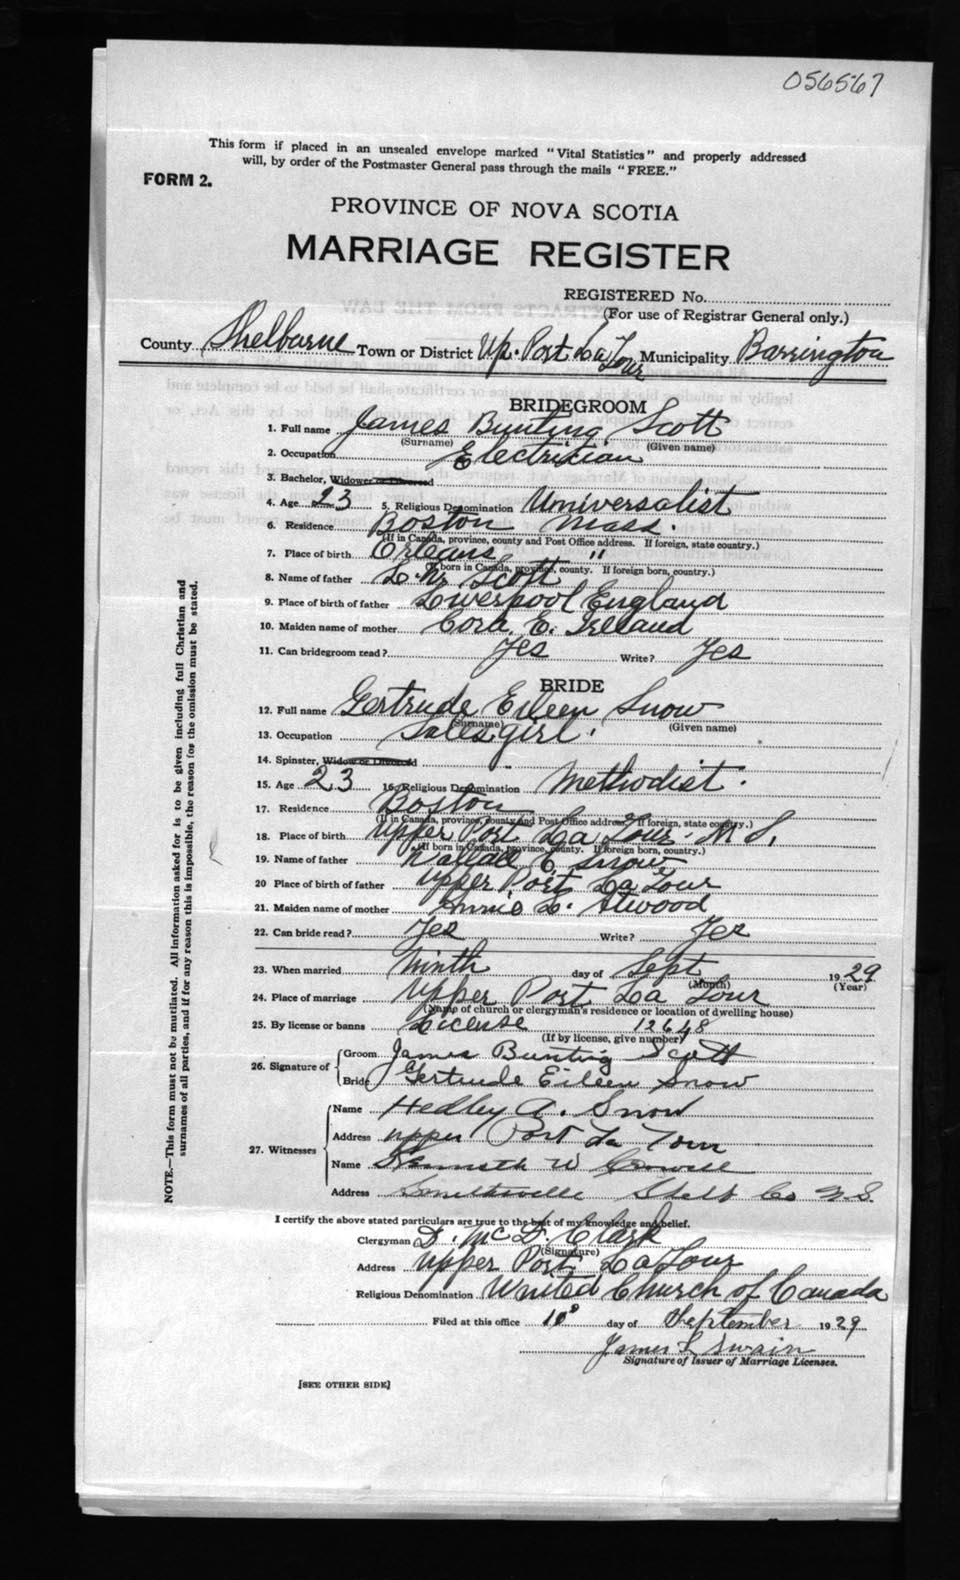 056567
This form if placed in an unsealed envelope marked "Vital Statistics" and properly addressed
will, by order of the Postmaster General pass through the mails "FREE."
FORM 2.
PROVINCE OF NOVA SCOTIA
MARRIAGE REGISTER
REGISTERED No.
(For use of Registrar General only.)
County Shelburne Town or District Up. Port La Tour Municipality Barrington
BRIDEGROOM
1. Full name James Bunting Scott
(Surname) (Given name)
2. Occupation Electrician
3. Bachelor, Widower or Divorced
4. Age 23 5. Religious Denomination Universalist
6. Residence Boston Mass.
(If in Canada, province, county and Post Office address. If foreign, state country.)
7. Place of birth Orleans "
(If born in Canada, province, county. If foreign born, country.)
8. Name of father Scott
9. Place of birth of father Liverpool England
10. Maiden name of mother Cora E. Ireland
11. Can bridegroom read? Yes Write? Yes
BRIDE
12. Full name Gertrude Eileen Snow
(Surname) (Given name)
13. Occupation Salesgirl.
14. Spinster, Widow or Divorced
15. Age 23 16. Religious Denomination Methodist.
17. Residence Boston
(If in Canada, province, county and Post Office address. If foreign, state country.)
18. Place of birth Upper Port La Tour. N S.
(If born in Canada, province, county. If foreign born, country.)
19. Name of father Snow
20 Place of birth of father Upper Port La Tour
21. Maiden name of mother Annie L. Atwood
22. Can bride read? Yes Write? Yes
23. When married Ninth day of Sept 1929
(Month) (Year)
24. Place of marriage Upper Port La Tour
(Name of church or clergyman's residence or location of dwelling house)
25. By license or banns License 12648
(If by license, give number)
26. Signature of
Groom James Bunting Scott
Bride Gertrude Eileen Snow
27. Witnesses
Name Hedley A. Snow
Address upper Port La Tour
Name Kenneth W Crowell
Address Smithsville Shelb Co N.S.
I certify the above stated particulars are true to the best of my knowledge and belief.
Clergyman D. McD. Clark
(Signature)
Address Upper Port La Tour
Religious Denomination United Church of Canada
Filed at this office 10 day of September 1929
James L Swain
Signature of Issuer of Marriage Licenses.
[SEE OTHER SIDE]
NOTE.—This form must not be mutilated. All information asked for is to be given including full Christian and
surnames of all parties, and if for any reason this is impossible, the reason for the omission must be stated.